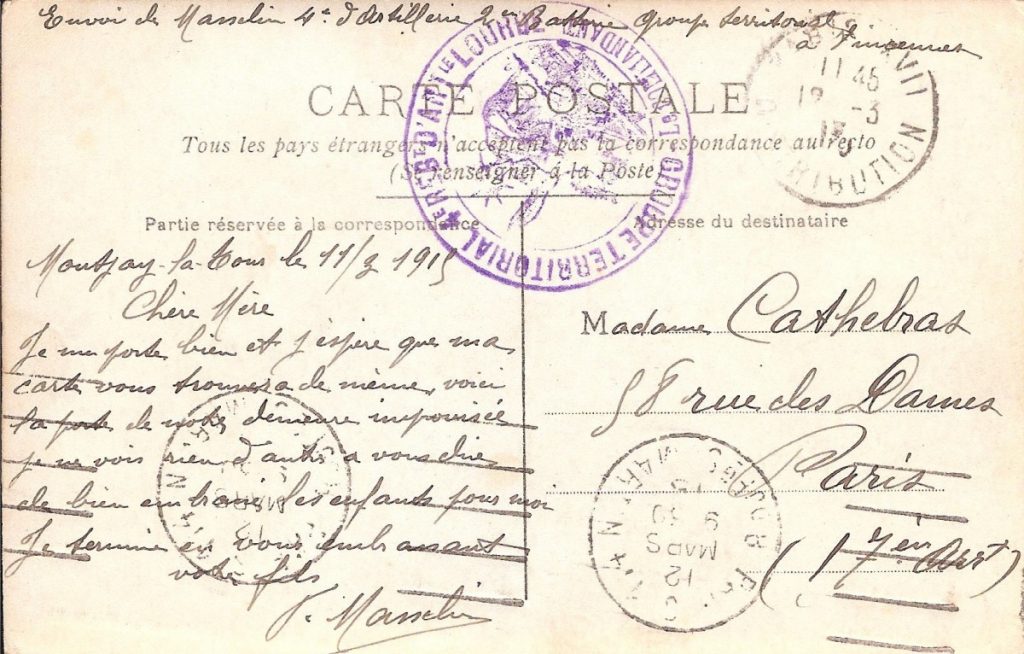 Envoi de Masselin 4e d'Artillerie 2em Batterie Groupe territorial
à Vincennes
CARTE POSTALE
Tous les pays étrangers n'acceptent pas la correspondance au recto
(Se renseigner à la Poste)
GROUPE TERRITORIAL
Partie réservée à la correspondance
Adresse du destinataire
11 45
12 -3
15
DISTRIBUTION
Montjay-la-Tour le 11/3 1915
Chère Mère
Je me porte bien et j'espère que ma
carte vous trouvera de même, voici
la porte de notre demeure improvisée
je ne vois rien d'autre a vous dire
de bien embrasser les enfants pour moi
Je termine en vous embrassant
votre fils
Masselin
Madame Cathebras
58 rue des Dames
Paris
(17em Arrt)
12
MARS
15